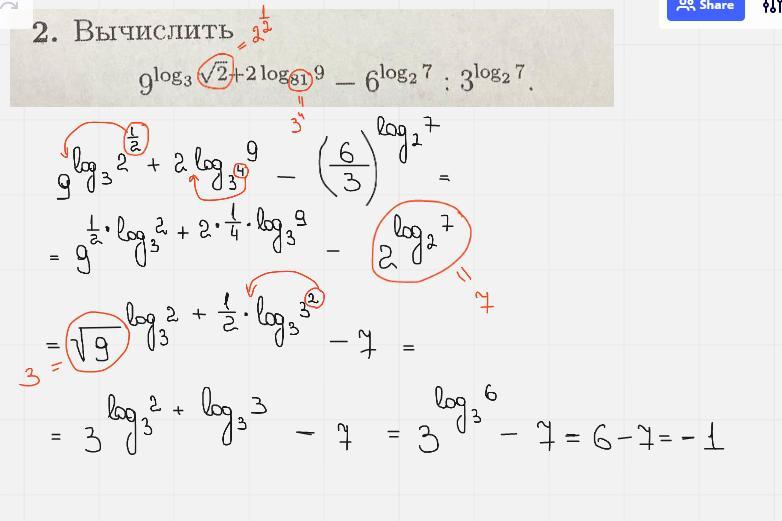 Share
2. Вычислить = 2^{1/2}
9^{log_3 √2 + 2 log_{81} 9} − 6^{log_2 7} : 3^{log_2 7}.
= 3^4
9^{log_3 2^{1/2} + 2 log_{3^4} 9} − (6/3)^{log_2 7} =
= 9^{1/2 · log_3 2 + 2 · 1/4 · log_3 9} − 2^{log_2 7} = 7
= √9^{log_3 2 + 1/2 · log_3 3^2} − 7 =
3 =
= 3^{log_3 2 + log_3 3} − 7 = 3^{log_3 6} − 7 = 6 − 7 = − 1